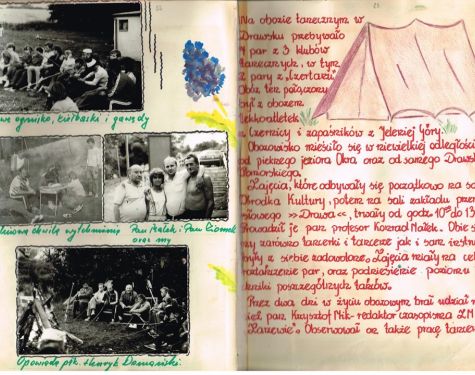 ognisko, kiełbaski i gawędy
chwila wytchnienia
Pan Piątek i Pan
oraz my
Opowiada płk. Henryk Domański.
Na obozie tanecznym w
Drawsku przebywało
4 par z 3 klubów
tanecznych, w tym
2 pary z „Czertazu”
Obóz ten połączony
był z obozem
lekkoatletek
z Czernicy i zapaśników z Jeleniej Góry.
Obozowisko mieściło się w niewielkiej odległości
od pięknego jeziora Okra, oraz od samego Drawska
Pomorskiego.
Zajęcia, które odbywały się początkowo na sali
Ośrodka Kultury, potem na sali zakładu
„Drawa”, trwały od godz. 10 do 13
Prowadził je pan profesor Konrad Małek. Obie
zarówno tancerki i tancerze jak i sam
były z siebie zadowolone. Zajęcia miały na celu
par, oraz podniesienie poziomu
poszczególnych tańców.
Przez dwa dni w życiu obozowym brał udział
pan Krzysztof Mik - redaktor czasopisma
Obserwował on także pracę